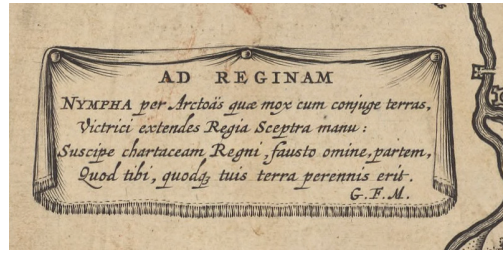 AD REGINAM
NYMPHA per Arctoäs quæ mox cum conjuge terras,
Victrici extendes Regia Sceptra manu:
Suscipe chartaceam Regni, fausto omine, partem,
Quod tibi, quodqꝫ tuis terra perennis erit.
G. F. M.